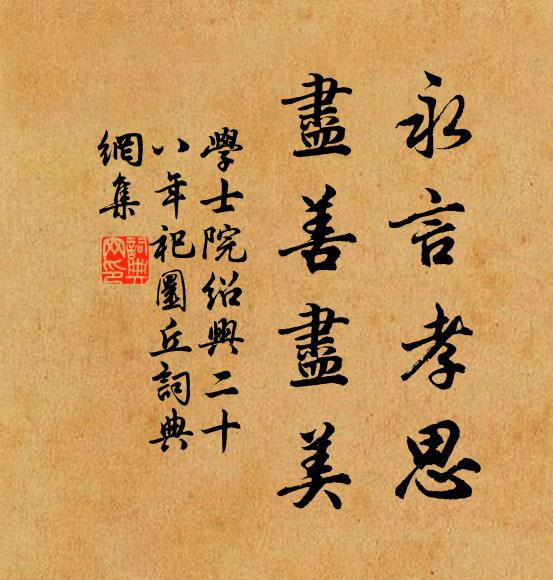 永言孝思
盡善盡美
學士院紹興二十
八年祀圜丘詞典
網集
詞典網印